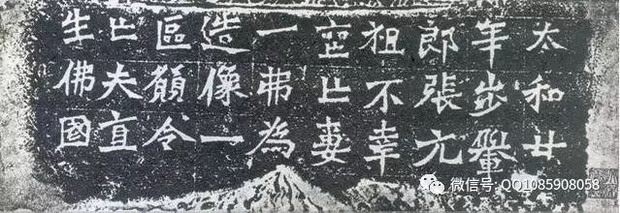 太和廿
年步轝
郎張元
祖不幸
喪亡妻
一弗為
造像一
區願令
亡夫直
生佛國
微信号: QQ1085908058